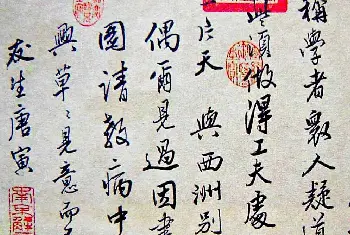 稱學者衆人疑道
些須做得工夫處
片天 與西洲別
偶爾見過因書
圖請教病中
興草〻見意而
友生唐寅
南京解